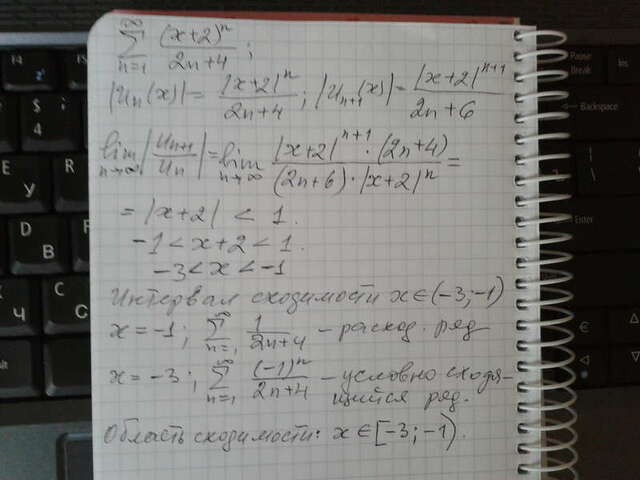 ∑_{n=1}^{∞} (x+2)^n / (2n+4) ;
|Uₙ(x)| = |x+2|^n / (2n+4) ; |Uₙ₊₁(x)| = |x+2|^{n+1} / (2n+6)
lim_{n→∞} |Uₙ₊₁ / Uₙ| = lim_{n→∞} |x+2|^{n+1} · (2n+4) / ((2n+6) · |x+2|^n) =
= |x+2| < 1.
-1 < x+2 < 1.
-3 < x < -1
Интервал сходимости x ∈ (-3; -1)
x = -1 ; ∑_{n=1}^{∞} 1 / (2n+4) – расход. ряд
x = -3 ; ∑_{n=1}^{∞} (-1)^n / (2n+4) – условно сходя-
щийся ряд.
Область сходимости: x ∈ [-3; -1).
Pause
Break
Ins
Backspace
Enter
Е
У
R
К
Ч
$
;
4